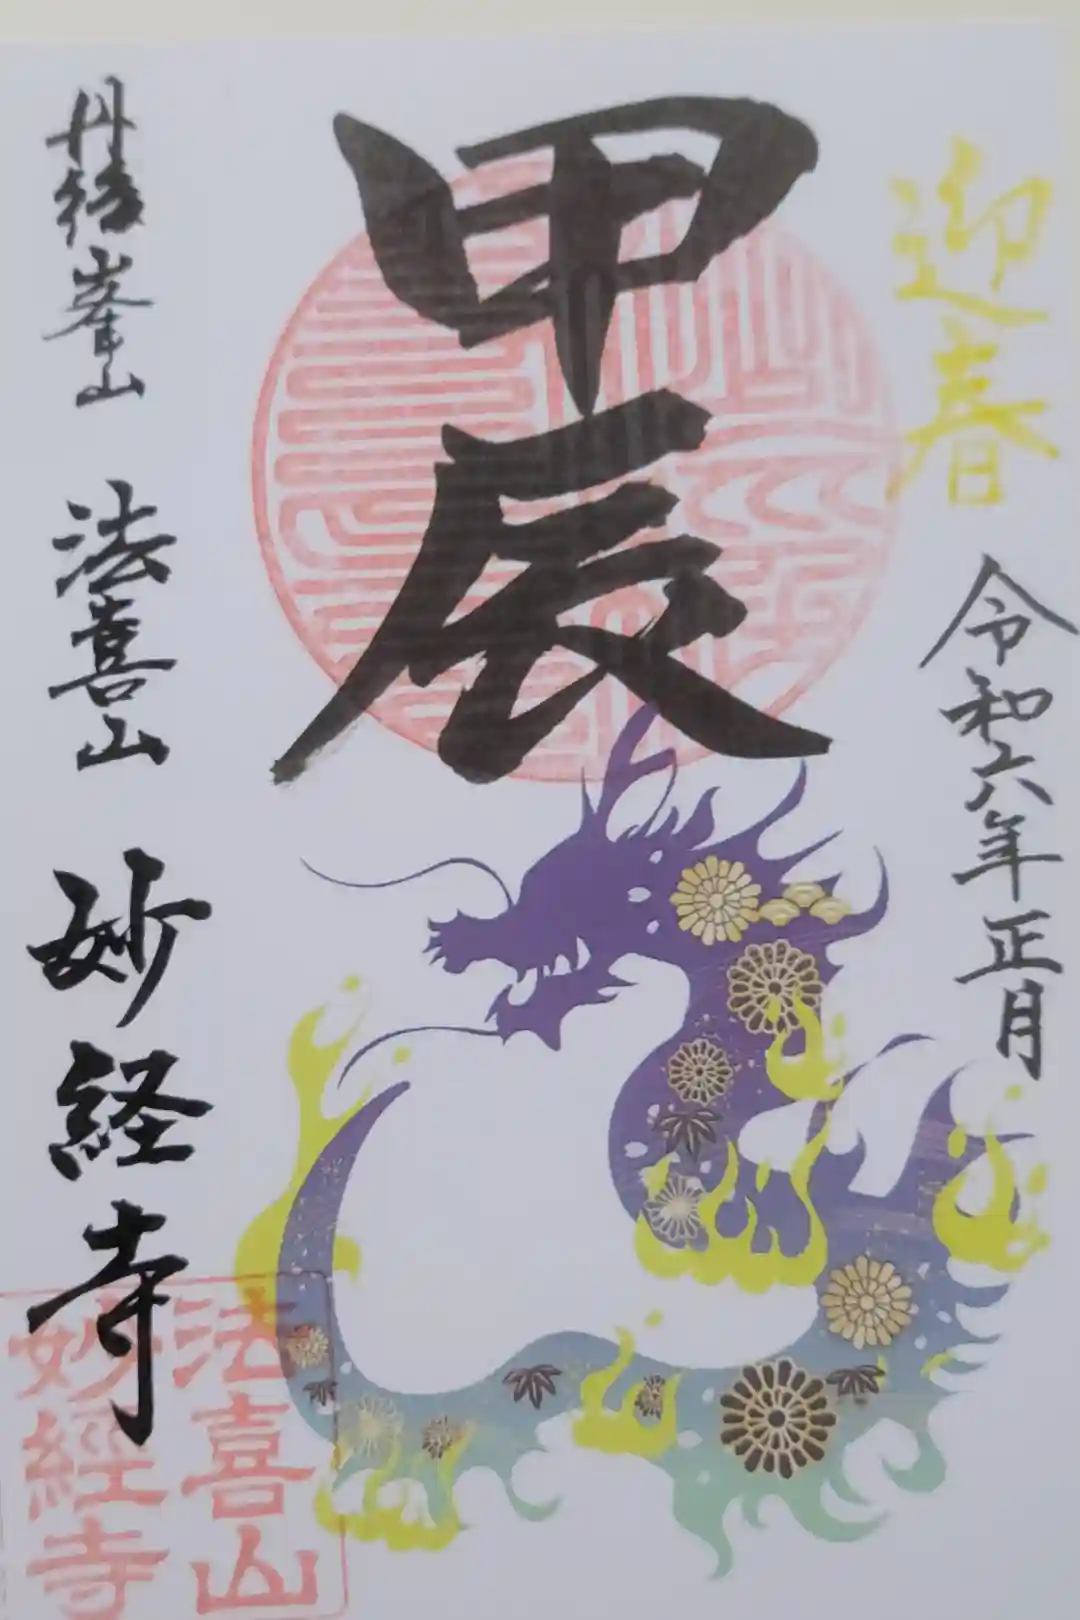 迎春
令和六年正月
甲辰
丹後峯山 法喜山 妙経寺
法喜山
妙經寺